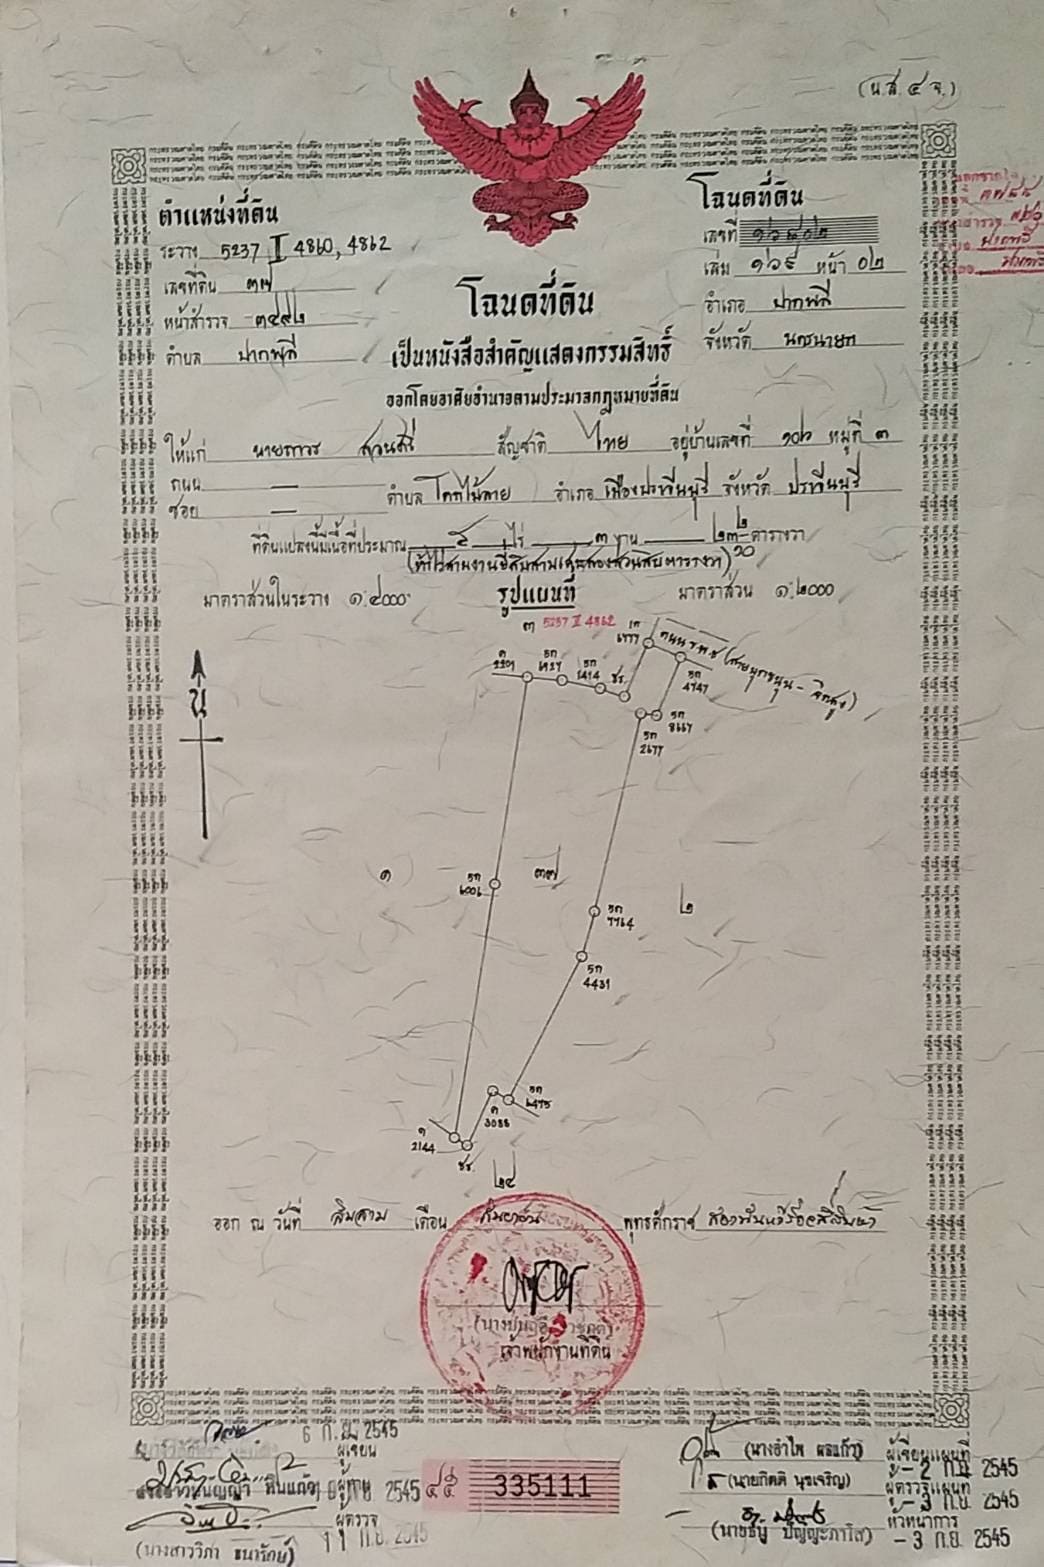 (น.ส. ๔ จ.)
ตำแหน่งที่ดิน
ระวาง 5237 II 4860, 4862
เลขที่ดิน ๓๗
หน้าสำรวจ
ตำบล ปากพลี
โฉนดที่ดิน
เลขที่ ๑๖๘๐๒
เล่ม ๑๖๙ หน้า ๐๒
อำเภอ ปากพลี
จังหวัด นครนายก
โฉนดที่ดิน
เป็นหนังสือสำคัญแสดงกรรมสิทธิ์
ออกโดยอาศัยอำนาจตามประมวลกฎหมายที่ดิน
ให้แก่ นายถาวร สวนสี สัญชาติ ไทย อยู่บ้านเลขที่ ๑๐๖ หมู่ที่ ๓
ถนน — ตำบล โคกไม้ลาย อำเภอ เมืองปราจีนบุรี จังหวัด ปราจีนบุรี
ซอย —
ที่ดินแปลงนี้มีเนื้อที่ประมาณ ๕ ไร่ ๓ งาน ๒๓ ๒/๑๐ ตารางวา
(ห้าไร่สามงานยี่สิบสามเศษสองส่วนสิบตารางวา)
มาตราส่วนในระวาง ๑:๔๐๐๐
รูปแผนที่
มาตราส่วน ๑:๒๐๐๐
๓ 5237 II 4862
ถนน ร.พ.ช.
2209
1414
4747
8667
2677
น
๑
๓๗
๒
7764
4431
6475
3088
2144
๒๔
ออก ณ วันที่ สิบสาม เดือน กันยายน พุทธศักราช สองพันห้าร้อยสี่สิบห้า
เจ้าพนักงานที่ดิน
6 ก.ย. 2545
ผู้เขียน
ผู้ทาน
2545
ผู้ตรวจ
11 ก.ย. 2545
(นางสาววิภา ธนารักษ์)
335111
(นางอำไพ ผลแก้ว) ผู้เขียนแผนที่
- 2 ก.ย. 2545
(นายกิตติ นุชเจริญ) ผู้ตรวจแผนที่
- 3 ก.ย. 2545
หัวหน้าการ
- 3 ก.ย. 2545